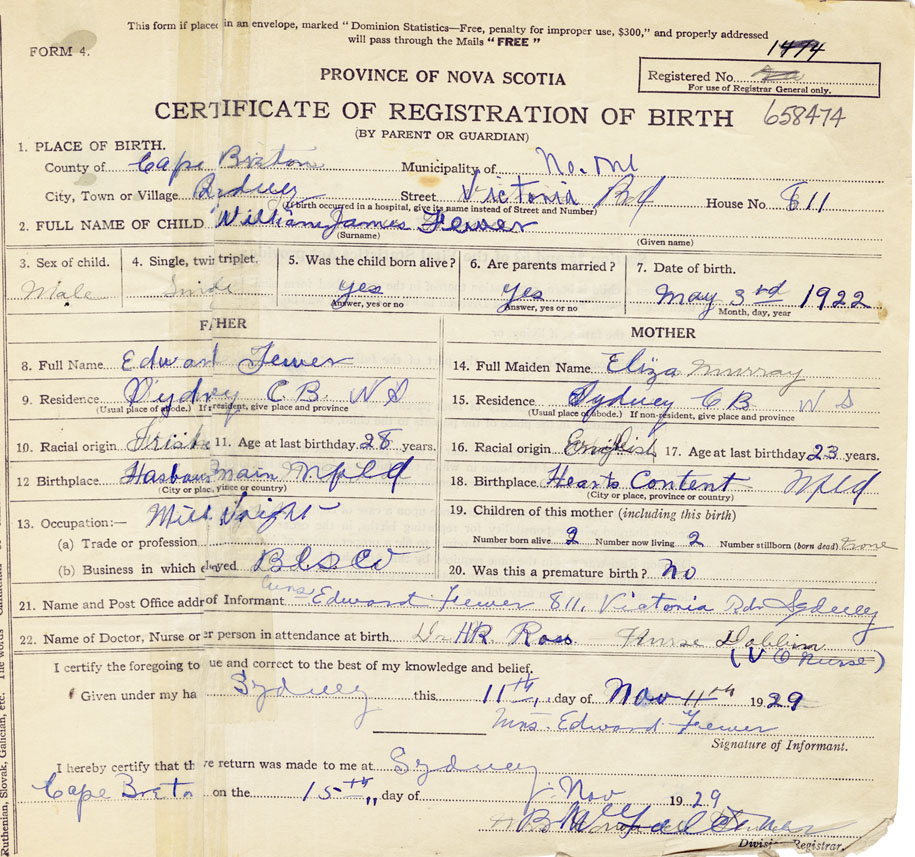 This form if placed in an envelope, marked "Dominion Statistics—Free, penalty for improper use, $300," and properly addressed
will pass through the Mails "FREE"
FORM 4.
1474
PROVINCE OF NOVA SCOTIA
Registered No.
For use of Registrar General only.
CERTIFICATE OF REGISTRATION OF BIRTH 658474
(BY PARENT OR GUARDIAN)
1. PLACE OF BIRTH.
County of Cape Breton Municipality of
City, Town or Village Sydney Street Victoria Rd House No. 811
(If birth occurred in a hospital, give its name instead of Street and Number)
2. FULL NAME OF CHILD William James Fewer
(Surname) (Given name)
3. Sex of child. 4. Single, twin triplet. 5. Was the child born alive? 6. Are parents married? 7. Date of birth.
Male yes yes May 3rd 1922
Answer, yes or no Answer, yes or no Month, day, year
FATHER MOTHER
8. Full Name Edward Fewer 14. Full Maiden Name Eliza Murray
9. Residence Sydney C B. N S 15. Residence Sydney C B N S
(Usual place of abode.) If resident, give place and province (Usual place of abode.) If non-resident, give place and province
10. Racial origin Irish 11. Age at last birthday 28 years. 16. Racial origin English 17. Age at last birthday 23 years.
12 Birthplace Harbour main Nfld 18. Birthplace Hearts Content Nfld
(City or place, vince or country) (City or place, province or country)
13. Occupation:— Mill Wright 19. Children of this mother (including this birth)
(a) Trade or profession Number born alive 2 Number now living 2 Number stillborn (born dead) none
(b) Business in which eloyed BESCO 20. Was this a premature birth? No
21. Name and Post Office addr of Informant Edward Fewer 811, Victoria Rd. Sydney
22. Name of Doctor, Nurse or er person in attendance at birth Dr HR. Ross Nurse Dobbin
(V O Nurse)
I certify the foregoing to ue and correct to the best of my knowledge and belief,
Given under my ha Sydney this 11th, day of Nov 11th 1929
Mrs. Edward Fewer
Signature of Informant.
I hereby certify that th ve return was made to me at Sydney
Cape Breto on the 15th, day of Nov 1929
Division Registrar.
Ruthenian, Slovak, Galician, etc. The words